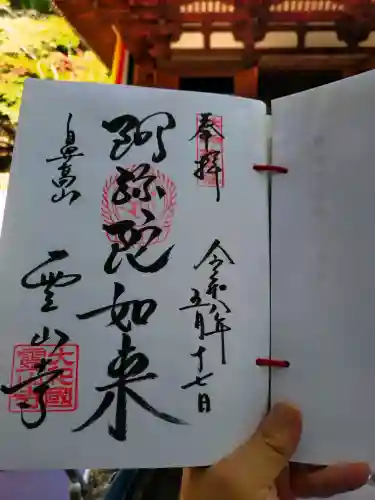 奉拝
令和八年
五月十七日
阿弥陀如来
鼻高山
霊山寺
大和國
靈山寺